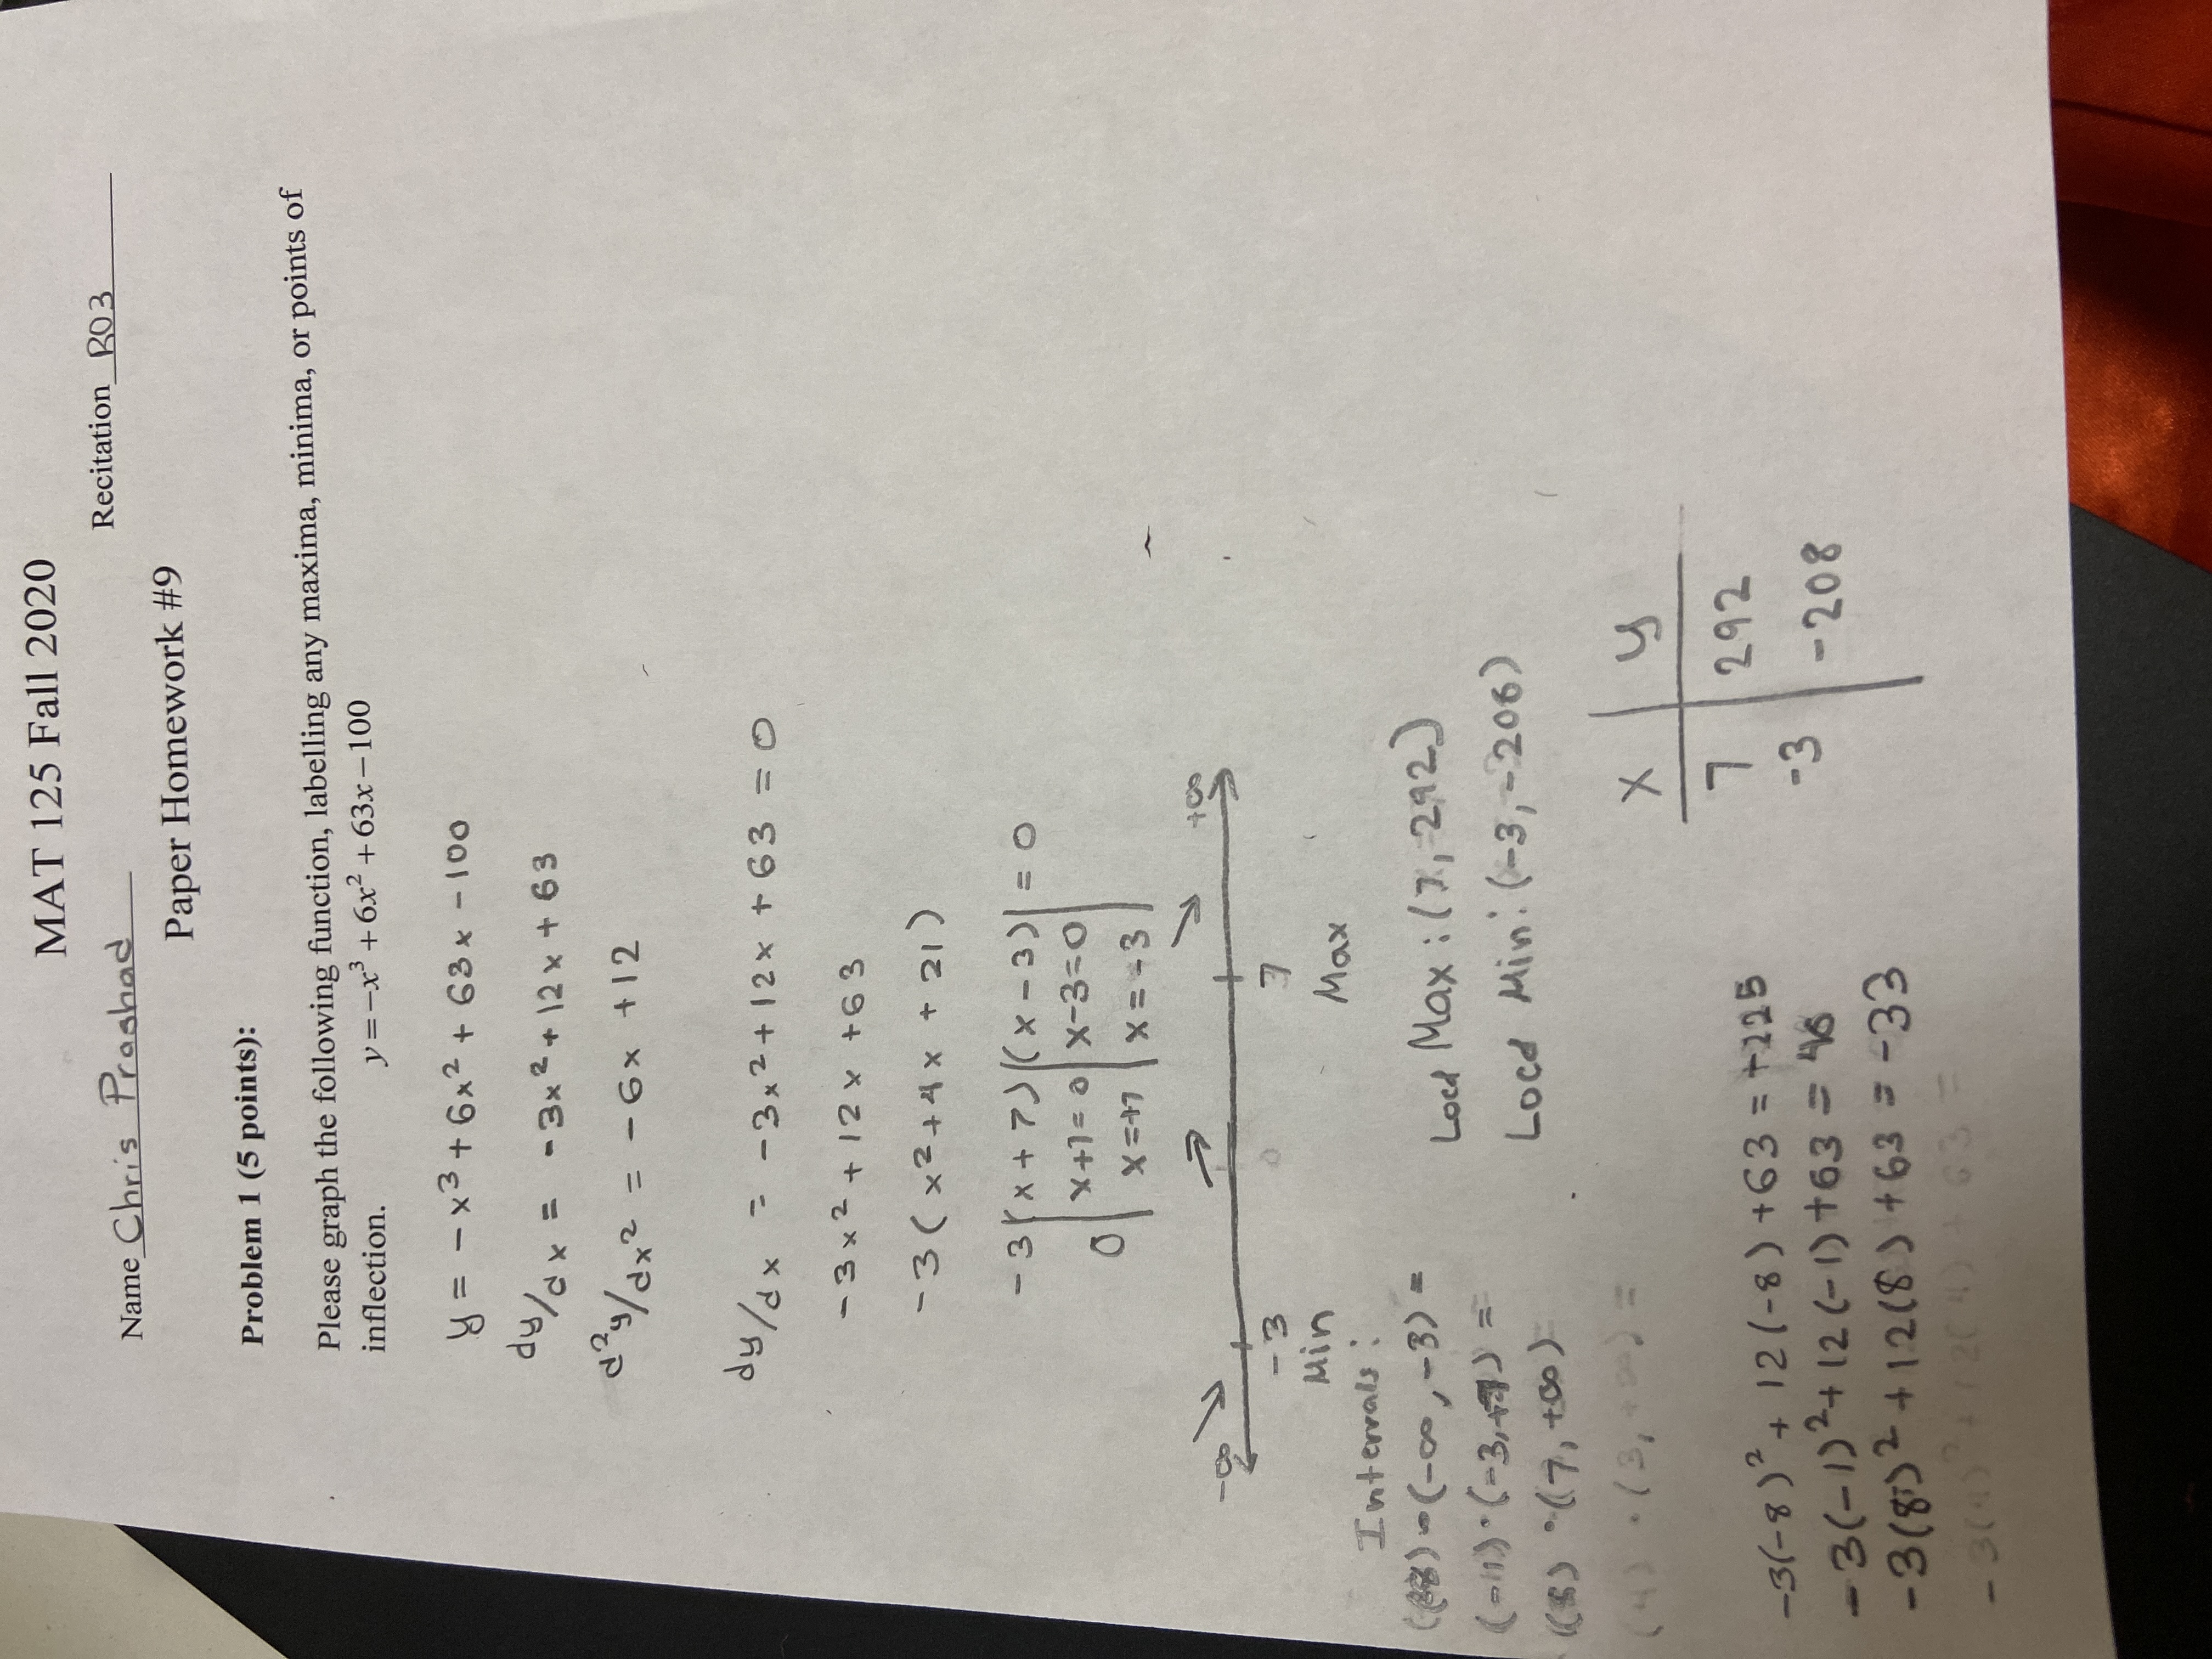 MAT 125 Fall 2020
Name Chris Prashad
Recitation R03
Paper Homework #9
Problem 1 (5 points):
Please graph the following function, labelling any maxima, minima, or points of
inflection. y=−x³+6x²+63x−100
y = -x³+6x² + 63x -100
dy/dx = -3x²+12x+63
d²y/dx² = -6x +12
dy/dx = -3x²+12x +63 = 0
-3x²+12x +63
-3(x²+4x + 21)
-3(x+7)(x-3) = 0
0 x+7=0 x-3=0
x=+7 x=-3
-∞ +∞
-3 0 7
Min Max
Intervals:
(-∞, -3) =
(-11)·(-3,+7) =
(8) ·(7,+∞)
(4) ·(3,+∞) =
Local Max: (7, 292)
Local Min: (-3, -206)
x y
7 292
-3 -208
-3(-8)²+ 12(-8) +63 = +225
-3(-1)²+12(-1)+63 = 46
-3(8)² +12(8) +63 = -33
-3(4)²+12(4)+63 =